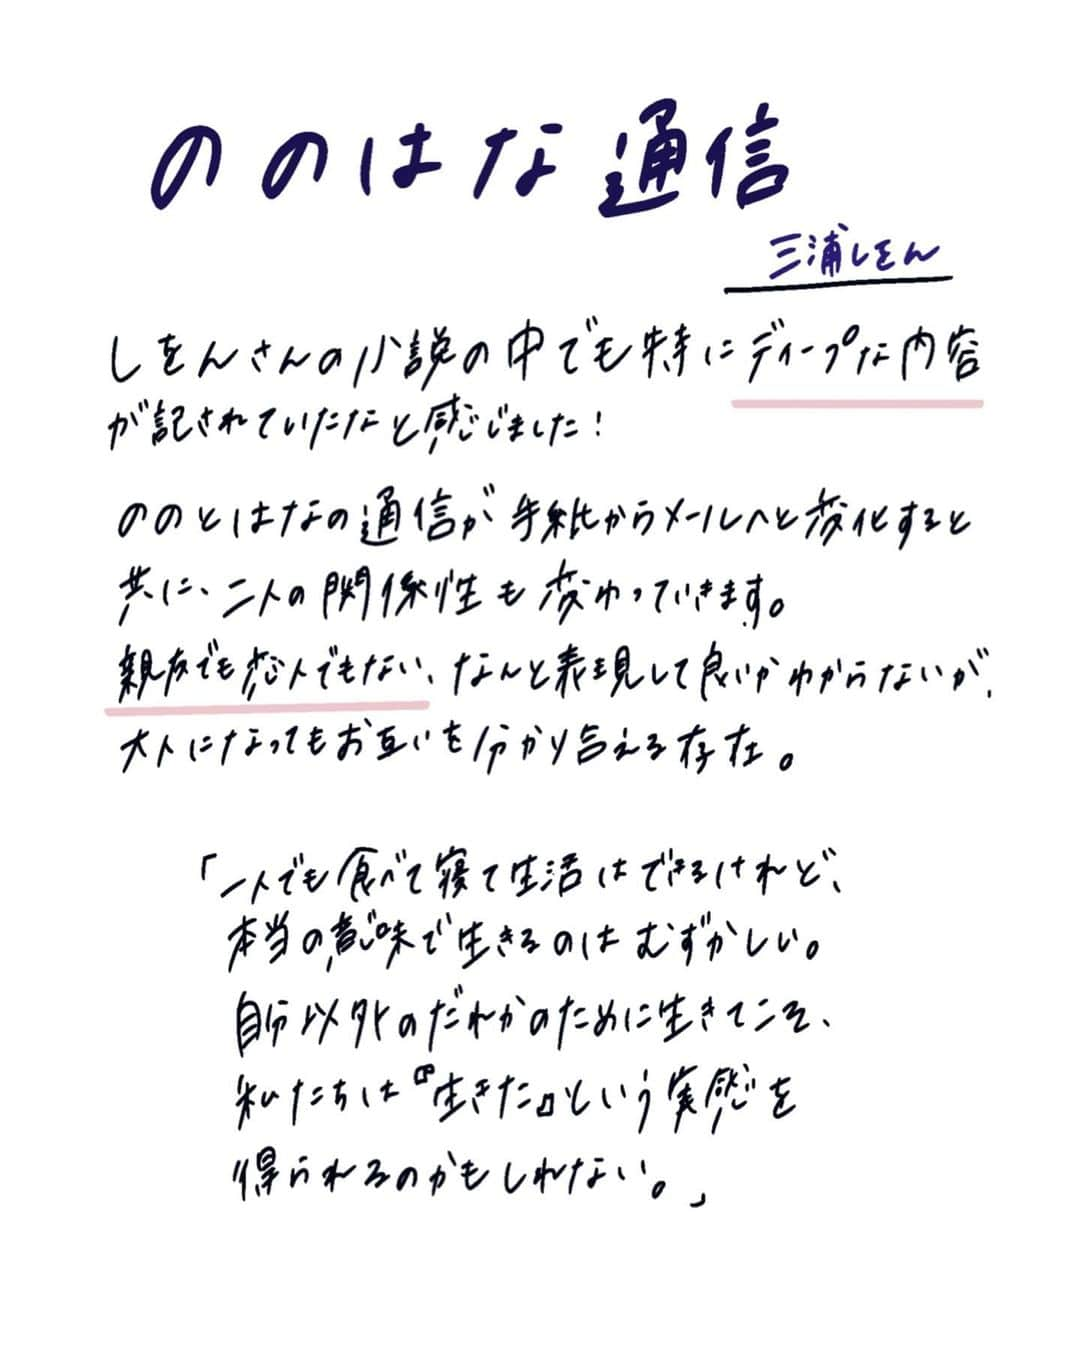 ののはな通信
三浦しをん
しをんさんの小説の中でも特にディープな内容
が記されていたなと感じました!
ののとはなの通信が手紙からメールへと変化すると
共に、二人の関係性も変わっていきます。
親友でも恋人でもない、なんと表現して良いかわからないが、
大人になってもお互いを分かり合える存在。
「一人でも食べて寝て生活はできるけれど、
本当の意味で生きるのはむずかしい。
自分以外のだれかのために生きてこそ、
私たちは『生きた』という実感を
得られるのかもしれない。」